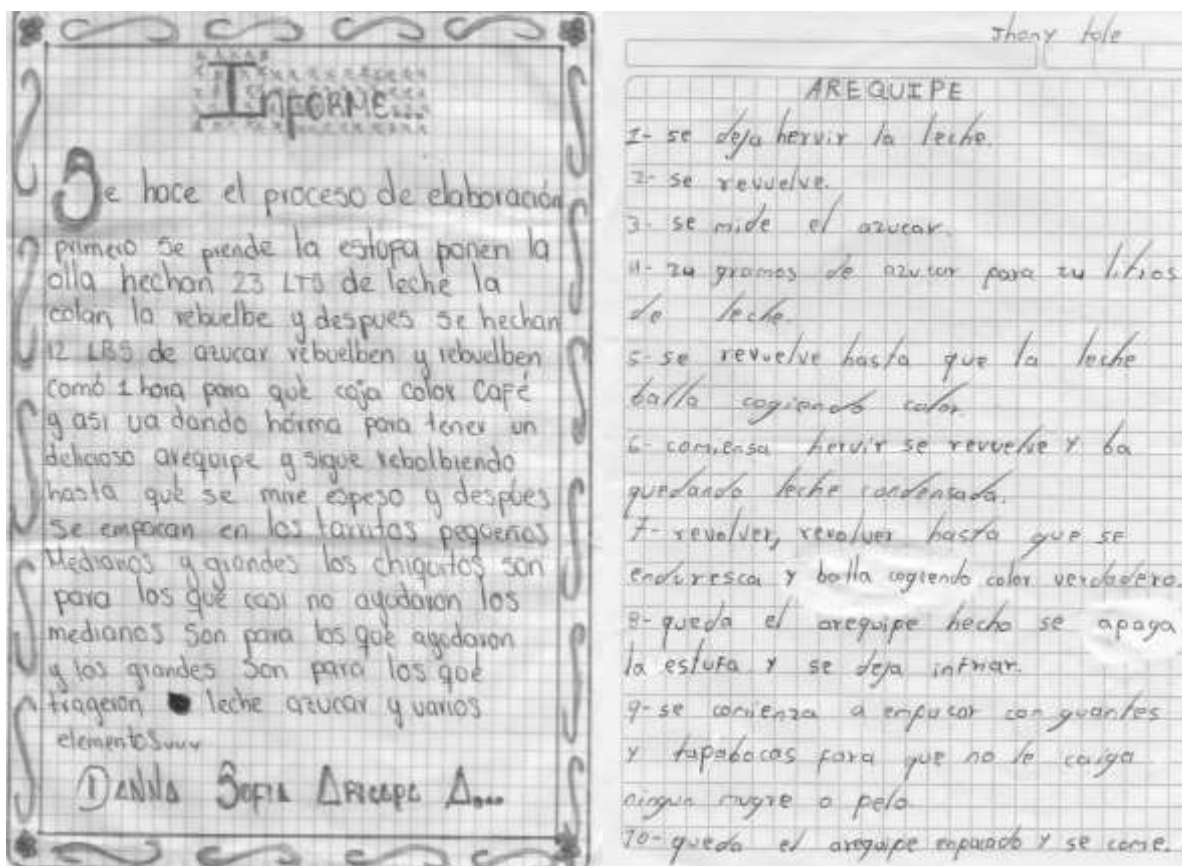 INFORME...
Se hace el proceso de elaboración
primero se prende la estufa ponen la
olla hechan 23 LTS de leche la
colan la rebuelbe y despues se hechan
12 LBS de azucar rebuelben y rebuelben
comó 1 hora para qué coja color Café
y asi va dando hórma para tener un
delicioso arequipe y sigue rebolbiendo
hasta qué se mire espeso y despúes
Se empacan en los tarritos pequeños
Medianos y grandes los chiquitos son
para los qué casi no ayudaron los
medianos Son para los qué ayudaron
y los grandes Son para los qué
trageron leche azucar y varios
elementos
DANNA SOFIA ARICAPA A...
Jhony tole
AREQUIPE
1- se deja hervir la leche.
2- se revuelve.
3- se mide el azucar.
4- 24 gramos de azucar para 24 litros
de leche.
5- se revuelve hasta que la leche
balla cogiendo color.
6- comiensa hervir se revuelve y ba
quedando leche condensada.
7- revolver, revolver hasta que se
enduresca y balla cogiendo color verdadero.
8- queda el arequipe hecho se apaga
la estufa y se deja infriar.
9- se comienza a empacar con guantes
y tapabocas para que no le caiga
ningun mugre o pelo.
10- queda el arequipe empacado y se come.